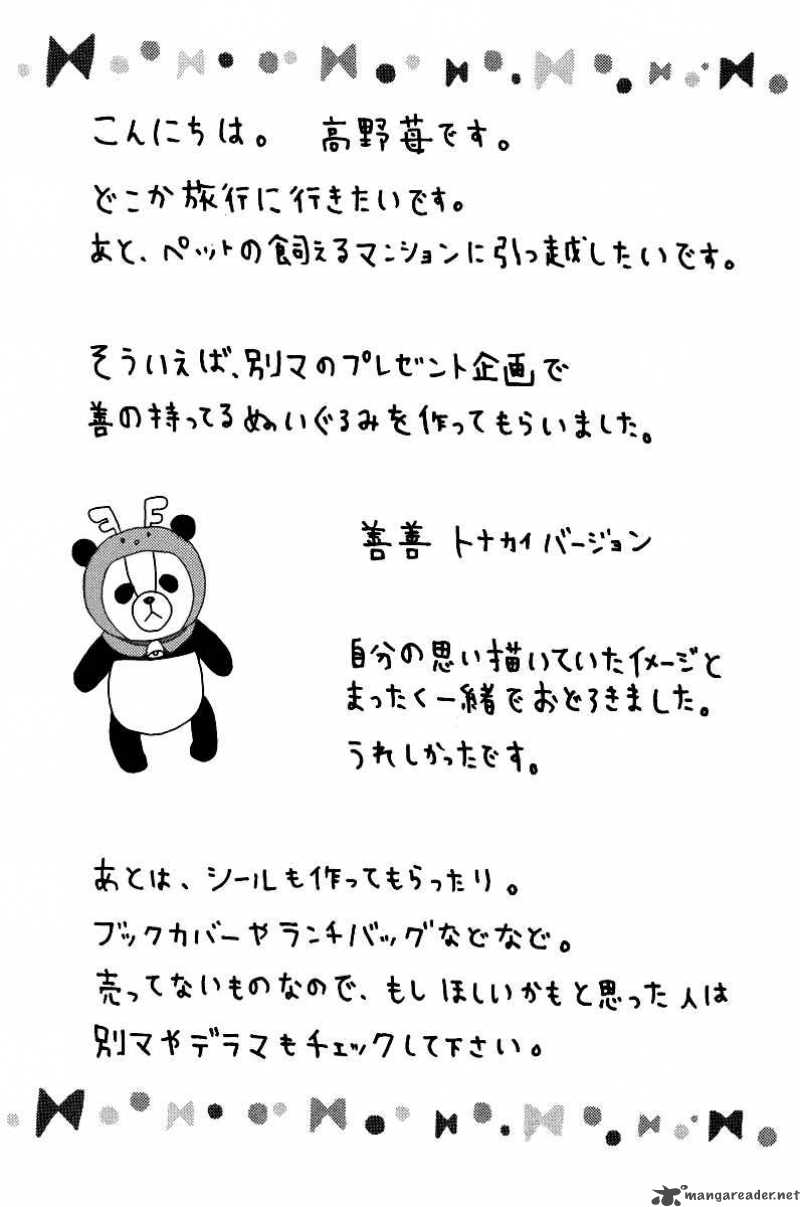 こんにちは。 高野苺です。
どこか旅行に行きたいです。
あと、ペットの飼えるマンションに引っ越したいです。
そういえば、別マのプレゼント企画で
善の持ってるぬいぐるみを作ってもらいました。
善善 トナカイバージョン
自分の思い描いていたイメージと
まったく一緒でおどろきました。
うれしかったです。
あとは、シールも作ってもらったり。
ブックカバーやランチバッグなどなど。
売ってないものなので、もしほしいかもと思った人は
別マやデラマもチェックして下さい。
mangareader.net